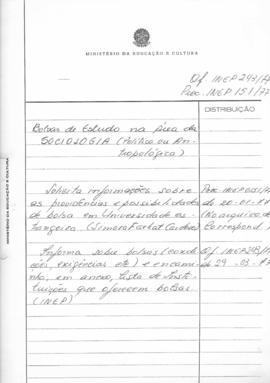 MINISTÉRIO DA EDUCAÇÃO E CULTURA
Of. INEP 243/7
Proc. INEP 151/77
DISTRIBUIÇÃO
Bolsas de Estudo na área da
SOCIOLOGIA (Política ou An-
tropológica)
Solicita informações sobre
as providências e possibilidades
de bolsa em Universidade es-
trangeira
Proc. INEP
de 20-01-77
Correspond.
Informa sobre bolsas (condi-
ções, exigências etc) e encami-
nha, em anexo, lista de Insti-
tuições que oferecem bolsas
(INEP)
Of. INEP 243/7
de 29-03-7
MINISTÉRIO DA EDUCAÇÃO E CULTURA